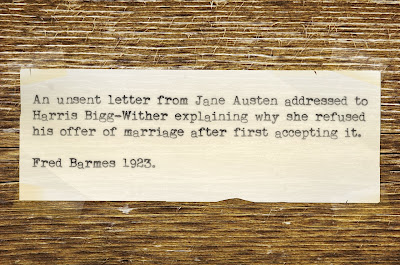 An unsent letter from Jane Austen addressed to
Harris Bigg-Wither explaining why she refused
his offer of marriage after first accepting it.
Fred Barmes 1923.